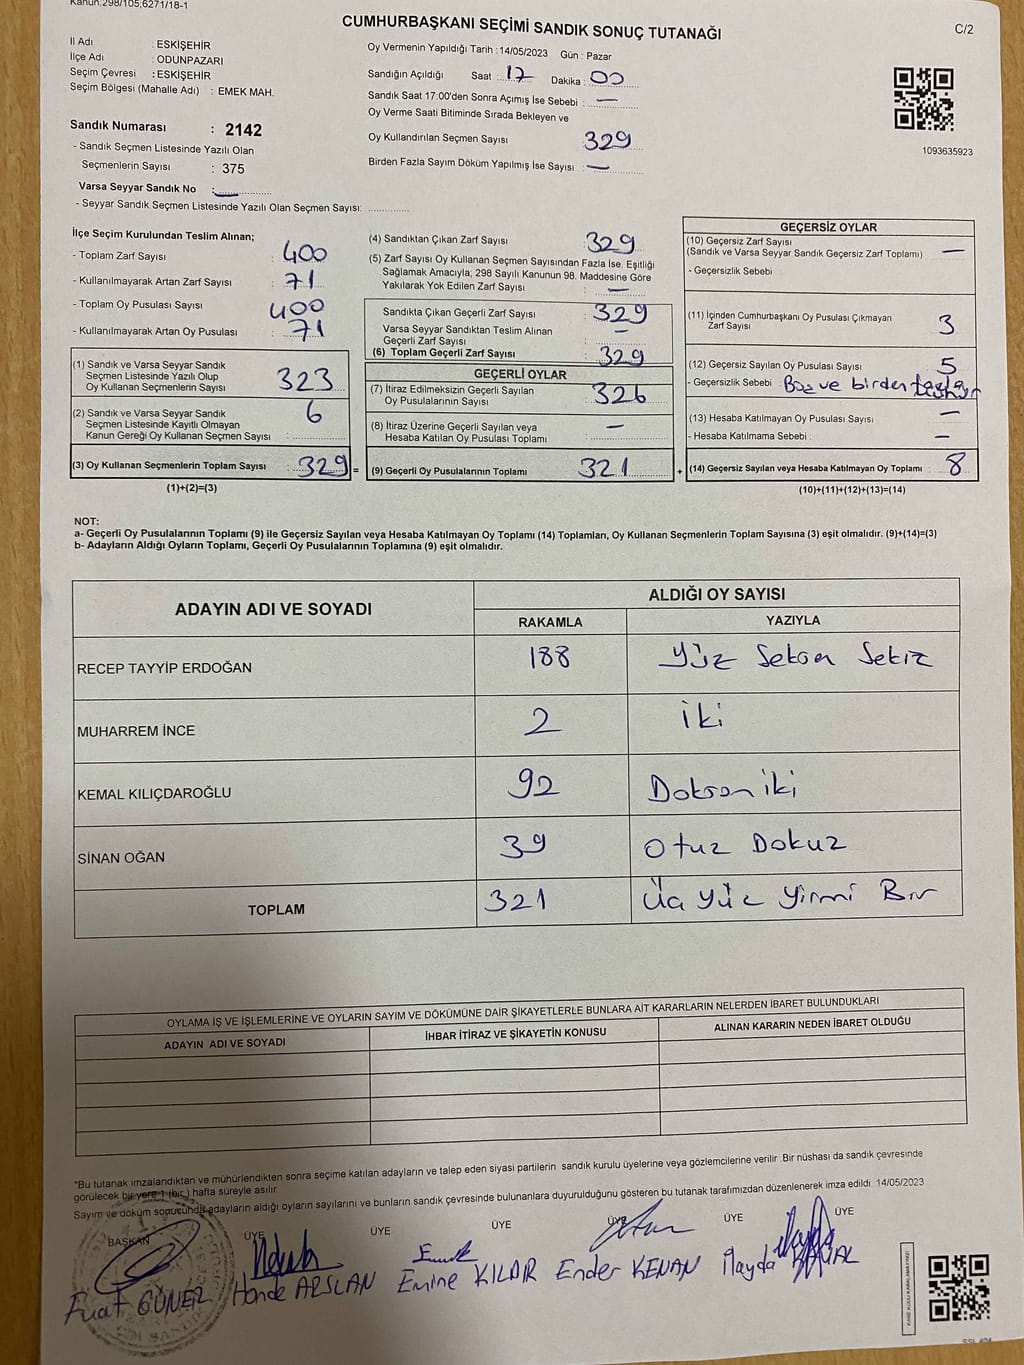 Kanun:298/105,6271/18-1
CUMHURBAŞKANI SEÇİMİ SANDIK SONUÇ TUTANAĞI
C/2
İl Adı : ESKİŞEHİR
İlçe Adı : ODUNPAZARI
Seçim Çevresi : ESKİŞEHİR
Seçim Bölgesi (Mahalle Adı) : EMEK MAH.
Sandık Numarası : 2142
- Sandık Seçmen Listesinde Yazılı Olan
Seçmenlerin Sayısı : 375
Varsa Seyyar Sandık No : —
- Seyyar Sandık Seçmen Listesinde Yazılı Olan Seçmen Sayısı:
Oy Vermenin Yapıldığı Tarih : 14/05/2023 Gün : Pazar
Sandığın Açıldığı Saat : 17 Dakika : 00
Sandık Saat 17:00'den Sonra Açımış İse Sebebi : —
Oy Verme Saati Bitiminde Sırada Bekleyen ve
Oy Kullandırılan Seçmen Sayısı : 329
Birden Fazla Sayım Döküm Yapılmış İse Sayısı : —
1093635923
İlçe Seçim Kurulundan Teslim Alınan;
- Toplam Zarf Sayısı : 400
- Kullanılmayarak Artan Zarf Sayısı : 71
- Toplam Oy Pusulası Sayısı : 400
- Kullanılmayarak Artan Oy Pusulası : 71
(1) Sandık ve Varsa Seyyar Sandık
Seçmen Listesinde Yazılı Olup
Oy Kullanan Seçmenlerin Sayısı : 323
(2) Sandık ve Varsa Seyyar Sandık
Seçmen Listesinde Kayıtlı Olmayan
Kanun Gereği Oy Kullanan Seçmen Sayısı : 6
(3) Oy Kullanan Seçmenlerin Toplam Sayısı : 329 =
(1)+(2)=(3)
(4) Sandıktan Çıkan Zarf Sayısı : 329
(5) Zarf Sayısı Oy Kullanan Seçmen Sayısından Fazla İse, Eşitliği
Sağlamak Amacıyla; 298 Sayılı Kanunun 98. Maddesine Göre
Yakılarak Yok Edilen Zarf Sayısı : —
Sandıkta Çıkan Geçerli Zarf Sayısı : 329
Varsa Seyyar Sandıktan Teslim Alınan
Geçerli Zarf Sayısı : —
(6) Toplam Geçerli Zarf Sayısı : 329
GEÇERLİ OYLAR
(7) İtiraz Edilmeksizin Geçerli Sayılan
Oy Pusulalarının Sayısı : 326
(8) İtiraz Üzerine Geçerli Sayılan veya
Hesaba Katılan Oy Pusulası Toplamı : —
(9) Geçerli Oy Pusulalarının Toplamı : 321 +
GEÇERSİZ OYLAR
(10) Geçersiz Zarf Sayısı
(Sandık ve Varsa Seyyar Sandık Geçersiz Zarf Toplamı) : —
- Geçersizlik Sebebi
(11) İçinden Cumhurbaşkanı Oy Pusulası Çıkmayan
Zarf Sayısı : 3
(12) Geçersiz Sayılan Oy Pusulası Sayısı : 5
- Geçersizlik Sebebi : Boş ve birden fazla
(13) Hesaba Katılmayan Oy Pusulası Sayısı : —
- Hesaba Katılmama Sebebi : —
(14) Geçersiz Sayılan veya Hesaba Katılmayan Oy Toplamı : 8
(10)+(11)+(12)+(13)=(14)
NOT:
a- Geçerli Oy Pusulalarının Toplamı (9) ile Geçersiz Sayılan veya Hesaba Katılmayan Oy Toplamı (14) Toplamları, Oy Kullanan Seçmenlerin Toplam Sayısına (3) eşit olmalıdır. (9)+(14)=(3)
b- Adayların Aldığı Oyların Toplamı, Geçerli Oy Pusulalarının Toplamına (9) eşit olmalıdır.
ADAYIN ADI VE SOYADI ALDIĞI OY SAYISI
RAKAMLA YAZIYLA
RECEP TAYYİP ERDOĞAN 188 Yüz Seksen Sekiz
MUHARREM İNCE 2 İki
KEMAL KILIÇDAROĞLU 92 Doksan iki
SİNAN OĞAN 39 Otuz Dokuz
TOPLAM 321 Üç Yüz Yirmi Bir
OYLAMA İŞ VE İŞLEMLERİNE VE OYLARIN SAYIM VE DÖKÜMÜNE DAİR ŞİKAYETLERLE BUNLARA AİT KARARLARIN NELERDEN İBARET BULUNDUKLARI
ADAYIN ADI VE SOYADI İHBAR İTİRAZ VE ŞİKAYETİN KONUSU ALINAN KARARIN NEDEN İBARET OLDUĞU
*Bu tutanak imzalandıktan ve mühürlendikten sonra seçime katılan adayların ve talep eden siyasi partilerin sandık kurulu üyelerine veya gözlemcilerine verilir .Bir nüshası da sandık çevresinde
görülecek bir yere 1 (bir ) hafta süreyle asılır.
Sayım ve döküm sonucunda adayların aldığı oyların sayılarını ve bunların sandık çevresinde bulunanlara duyurulduğunu gösteren bu tutanak tarafımızdan düzenlenerek imza edildi. 14/05/2023
BAŞKAN ÜYE ÜYE ÜYE ÜYE ÜYE ÜYE
Fuat GÜNER Hande ARSLAN Emine KILDIR Ender KENAN İlayda